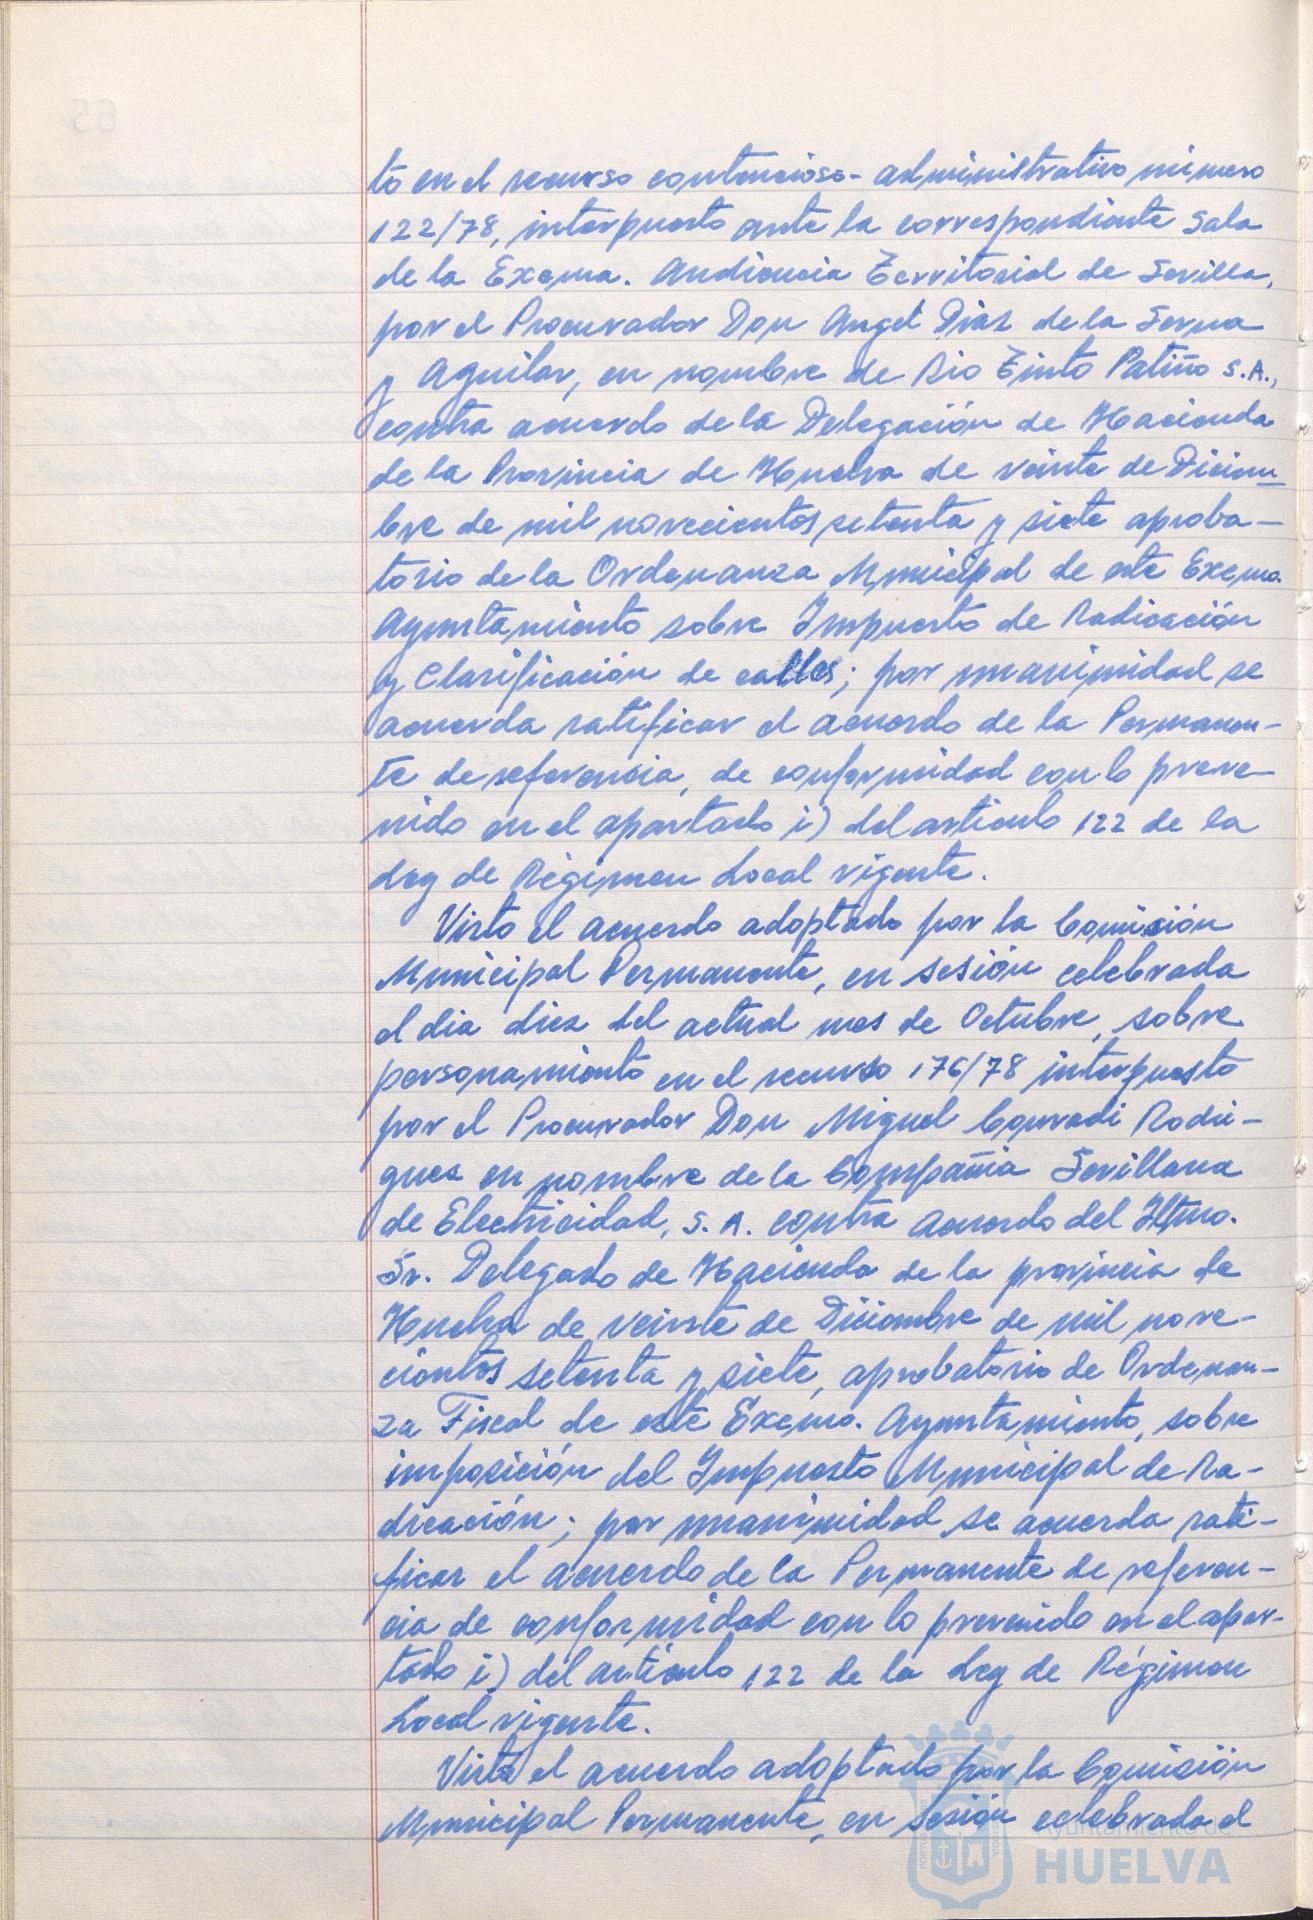 to en el recurso contencioso-administrativo número
122/78, interpuesto ante la correspondiente Sala
de la Excma. Audiencia Territorial de Sevilla,
por el Procurador Don Angel Diaz de la Serna
y Aguilar, en nombre de Rio Tinto Patiño S.A.,
contra acuerdo de la Delegación de Hacienda
de la Provincia de Huelva de veinte de Diciem
bre de mil novecientos setenta y siete aproba-
torio de la Ordenanza Municipal de este Excmo.
Ayuntamiento sobre Impuesto de Radicación
y Clasificación de calles; por unanimidad se
acuerda ratificar el acuerdo de la Permanen-
te de referencia, de conformidad con lo preve-
nido en el apartado i) del articulo 122 de la
Ley de Régimen Local vigente.
Visto el acuerdo adoptado por la Comisión
Municipal Permanente, en sesión celebrada
el dia diez del actual mes de Octubre, sobre
personamiento en el recurso 176/78 interpuesto
por el Procurador Don Miguel Conradi Rodri-
guez en nombre de la Compañia Sevillana
de Electricidad, S.A. contra Acuerdo del Iltmo.
Sr. Delegado de Hacienda de la provincia de
Huelva de veinte de Diciembre de mil nove-
cientos setenta y siete, aprobatorio de Ordenan-
za Fiscal de este Excmo. Ayuntamiento, sobre
imposición del Impuesto Municipal de Ra-
dicación; por unanimidad se acuerda rati-
ficar el acuerdo de la Permanente de referen-
cia de conformidad con lo prevenido en el apar-
tado i) del artículo 122 de la Ley de Régimen
Local vigente.
Visto el acuerdo adoptado por la Comisión
Municipal Permanente, en sesión celebrada el
Ayuntamiento de
HUELVA